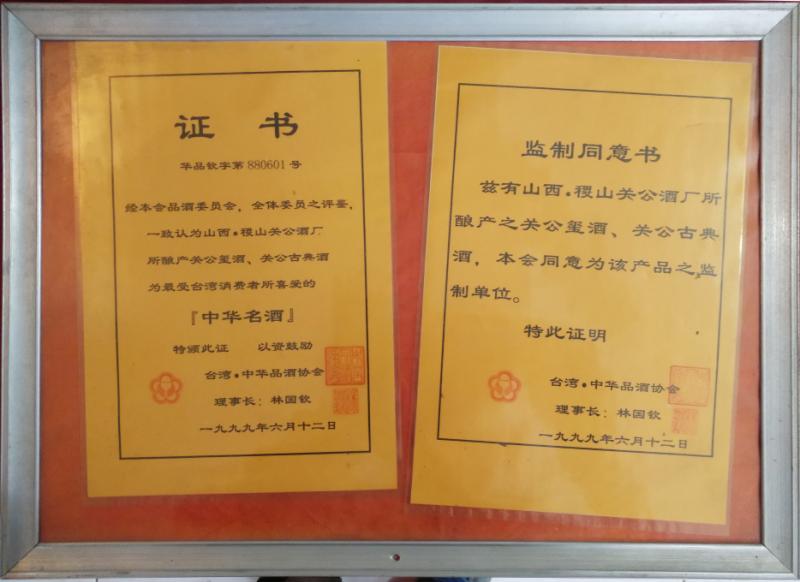 证 书
华品钦字第880601号
经本会品酒委员会，全体委员之评鉴，
一致认为山西·稷山关公酒厂
所酿产关公玺酒、关公古典酒
为最受台湾消费者所喜爱的
『中华名酒』
特颁此证 以资鼓励
台湾·中华品酒协会
理事长：林国钦
一九九九年六月十二日
监制同意书
兹有山西·稷山关公酒厂所
酿产之关公玺酒、关公古典
酒，本会同意为该产品之监
制单位。
特此证明
台湾·中华品酒协会
理事长：林国钦
一九九九年六月十二日